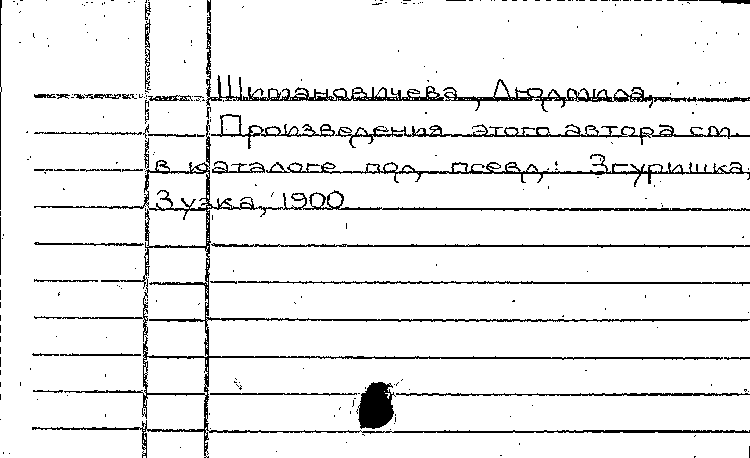 Шимановичева, Людмила,
Произведения этого автора см.
в каталоге под псевд.: Згуришка,
Зузка, 1900